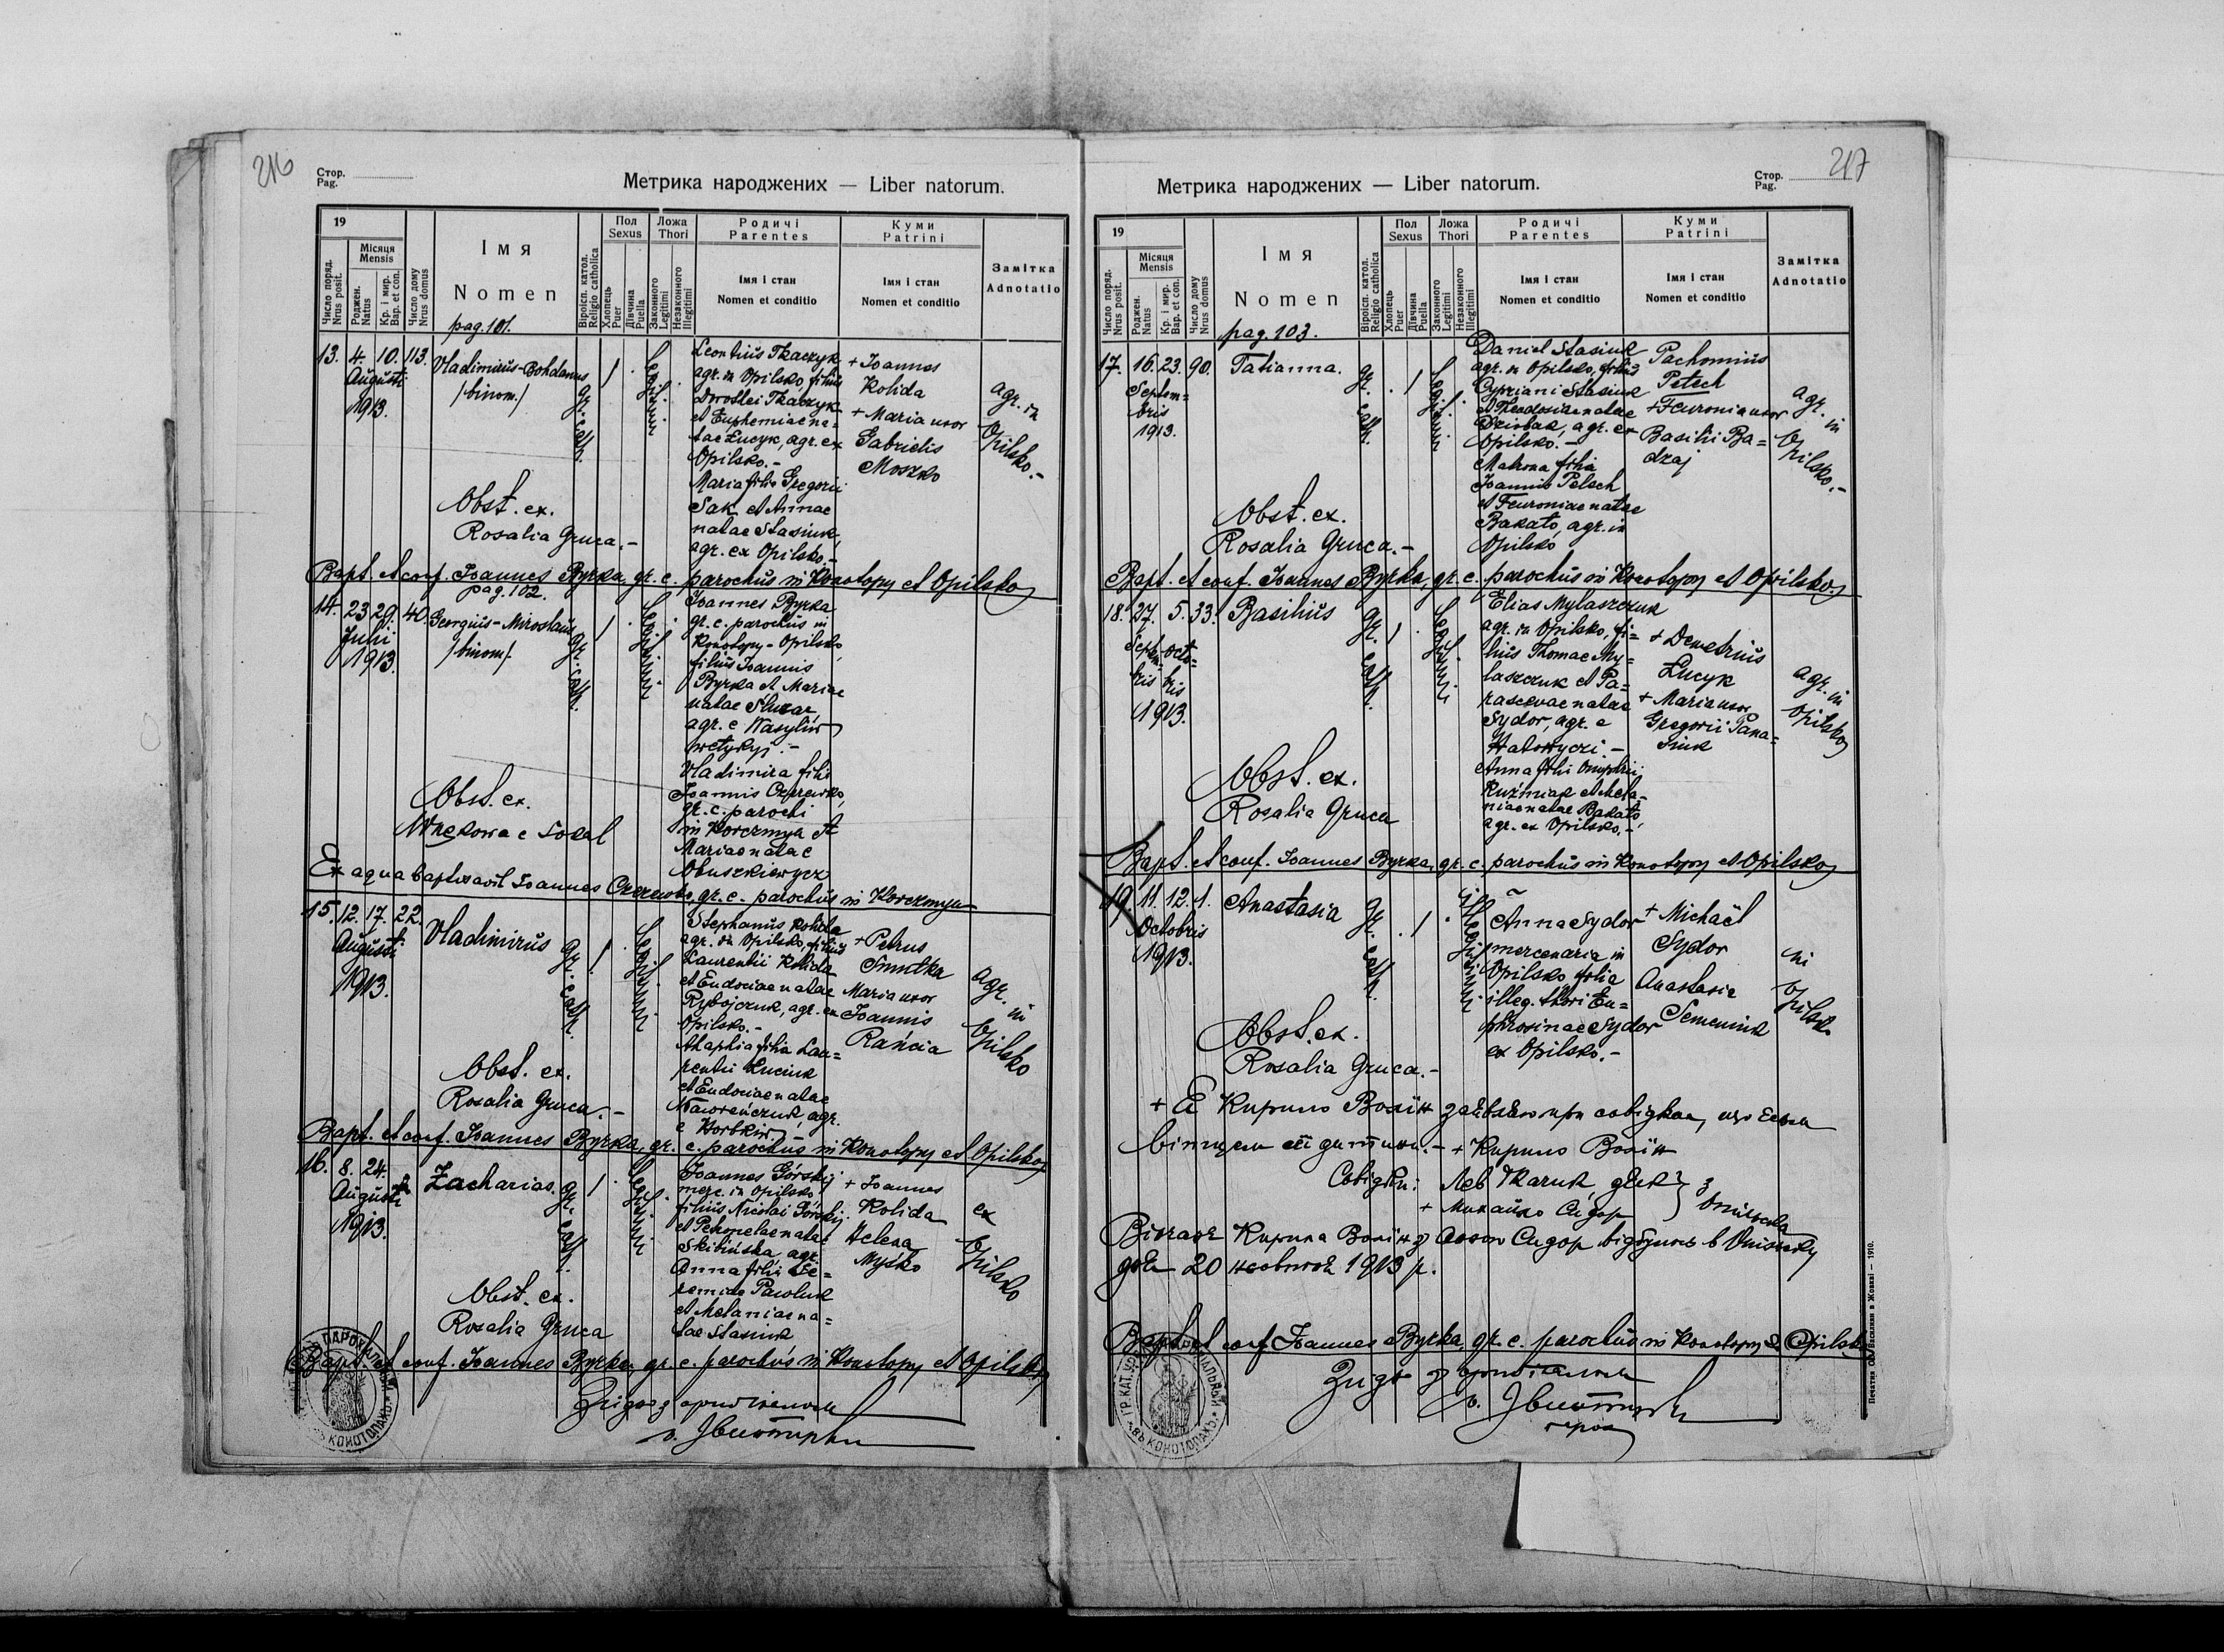 216
Стор.
Pag.
Метрика народжених — Liber natorum.
19
Число поряд.
Nrus posit.
Місяця
Mensis
Роджен.
Natus
Кр. і мир.
Bap. et con.
Число дому
Nrus domus
Імя
Nomen
pag. 101.
Віроісп. катол.
Religio catholica
Пол
Sexus
Хлопець
Puer
Дівчина
Puella
Ложа
Thori
Законного
Legitimi
Незаконного
Illegitimi
Родичі
Parentes
Імя і стан
Nomen et conditio
Куми
Patrini
Імя і стан
Nomen et conditio
Замітка
Adnotatio
13. 4. 10. 113.
Augusti
1913.
Vladimirus-Bohdanus
/binom./
gr. cath.
Legitimi
Leontius Tkaczyk
agr. in Opilsko, filius
Dorothei Tkaczyk
et Euphemiae na=
tae Łucyk, agr. ex
Opilsko.-
Maria filia Gregorii
Sak et Annae
natae Stasiuk,
agr. ex Opilsko.-
+ Joannes
Kolida
+ Maria uxor
Gabrielis
Moszko
agr. in
Opilsko.-
Obst. ex.
Rosalia Gruca.-
Bapt. et conf. Joannes Byrka, gr. c. parochus in Konotopy et Opilsko
pag. 102.
14. 23 29. 40.
Julii
1913.
Georgius-Miroslaus
/binom/.
gr. cath.
Legitimi
Joannes Byrka
gr. c. parochus in
Konotopy-Opilsko,
filius Joannis
Byrka et Mariae
natae Śluzar,
agr. e Wasyliw
wełykyj.-
Vladimira filia
Joannis Czerewko,
gr. c. parochi
in Korczmyn et
Mariae natae
Obuszkiewycz
Obst. ex.
e Sokal
Ex aqua baptisavit Joannes Czerewko, gr. c. parochus in Korczmyn
15. 12. 17. 22.
Augusti
1913.
Vladimirus
gr. cath.
Legitimi
Stephanus Kolida
agr. in Opilsko, filius
Laurentii Kolida
et Eudociae natae
Rybojczuk, agr. ex
Opilsko.-
Ahaphia filia Lau=
rentii Łuciuk
et Eudociae natae
agr.
e Horbkiw.-
+ Petrus
Smutka
Maria uxor
Joannis
Rańcia
agr. in
Opilsko
Obst. ex.
Rosalia Gruca.-
Bapt. et conf. Joannes Byrka, gr. c. parochus in Konotopy et Opilsko
16. 8. 24.
Augusti
1913.
Zacharias.
gr. cath.
Legitimi
Joannes Górskij
merc. in Opilsko
filius Nicolai Górskij
et Petronelae natae
Skibińska, agr.
Anna filia Ie=
remiae Pawluk
et Melaniae na=
tae Stasiuk
+ Joannes
Kolida
Helena
Myśko
ex
Opilsko
Obst. ex.
Rosalia Gruca
Bapt. et conf. Joannes Byrka, gr. c. parochus in Konotopy et Opilsko
ПАРОХІАЛЬНЫЙ
ВЪ КОНОТОПАХЪ
217
Стор.
Pag.
Метрика народжених — Liber natorum.
19
Число поряд.
Nrus posit.
Місяця
Mensis
Роджен.
Natus
Кр. і мир.
Bap. et con.
Число дому
Nrus domus
Імя
Nomen
pag. 103.
Віроісп. катол.
Religio catholica
Пол
Sexus
Хлопець
Puer
Дівчина
Puella
Ложа
Thori
Законного
Legitimi
Незаконного
Illegitimi
Родичі
Parentes
Імя і стан
Nomen et conditio
Куми
Patrini
Імя і стан
Nomen et conditio
Замітка
Adnotatio
17. 16. 23. 90.
Septem=
bris
1913.
Tatianna.
gr. cath.
Legitimi
Daniel Stasiuk
agr. in Opilsko, filius
Cypriani Stasiuk
et Theodosiae natae
Dziobak, agr. ex
Opilsko.-
Matrona filia
Joannis Pelech
et Feuroniae natae
Bakato, agr. in
Opilsko
Pachomius
Petech
+ Feuronia uxor
Basilii Ba=
dzaj
agr. in
Opilsko.-
Obst. ex.
Rosalia Gruca.-
Bapt. et conf. Joannes Byrka, gr. c. parochus in Konotopy et Opilsko
18. 27. 5. 33.
Septem= octo=
bris bris
1913.
Basilius
gr. cath.
Legitimi
Elias Mylaszczuk
agr. in Opilsko, fi=
lius Thomae My=
laszczuk et Pa=
rascevae natae
Sydor, agr. e
Hatowyczi.-
Anna filia Onuphrii
Kuźmiak et Mela=
niae natae Bakato,
agr. ex Opilsko.-
+ Demetrius
Łucyk
+ Maria uxor
Gregorii Pana=
siuk
agr. in
Opilsko
Obst. ex.
Rosalia Gruca
Bapt. et conf. Joannes Byrka, gr. c. parochus in Konotopy et Opilsko
19. 11. 12. 1.
Octobris
1913.
Anastasia
gr. cath.
illegitimi
Anna Sydor
mercenaria in
Opilsko filia
illeg. thori Eu=
phrosinae Sydor
ex Opilsko.-
+ Michaël
Sydor
Anastasia
Semeniuk
in
Opilsko
Obst. ex.
Rosalia Gruca.-
+ Я Кирило Волїн заявляю при свідках, що єсьм
вітцем сеї дитини.- + Кирило Волїн
Сьвідки: Лев Ткачик, дяк } з
+ Михайло Сидор } Опільска
Вінчанє Кирила Волїн з Анною Сидор відбулось в Опілську
дня 20 1913 р.
Bapt. et conf. Joannes Byrka, gr. c. parochus in Konotopy et Opilsko
ГР. КАТ. УРЯД ПАРОХІАЛЬНЫЙ
ВЪ КОНОТОПАХЪ
Печатня ОО. Василиян в Жовкві — 1910.